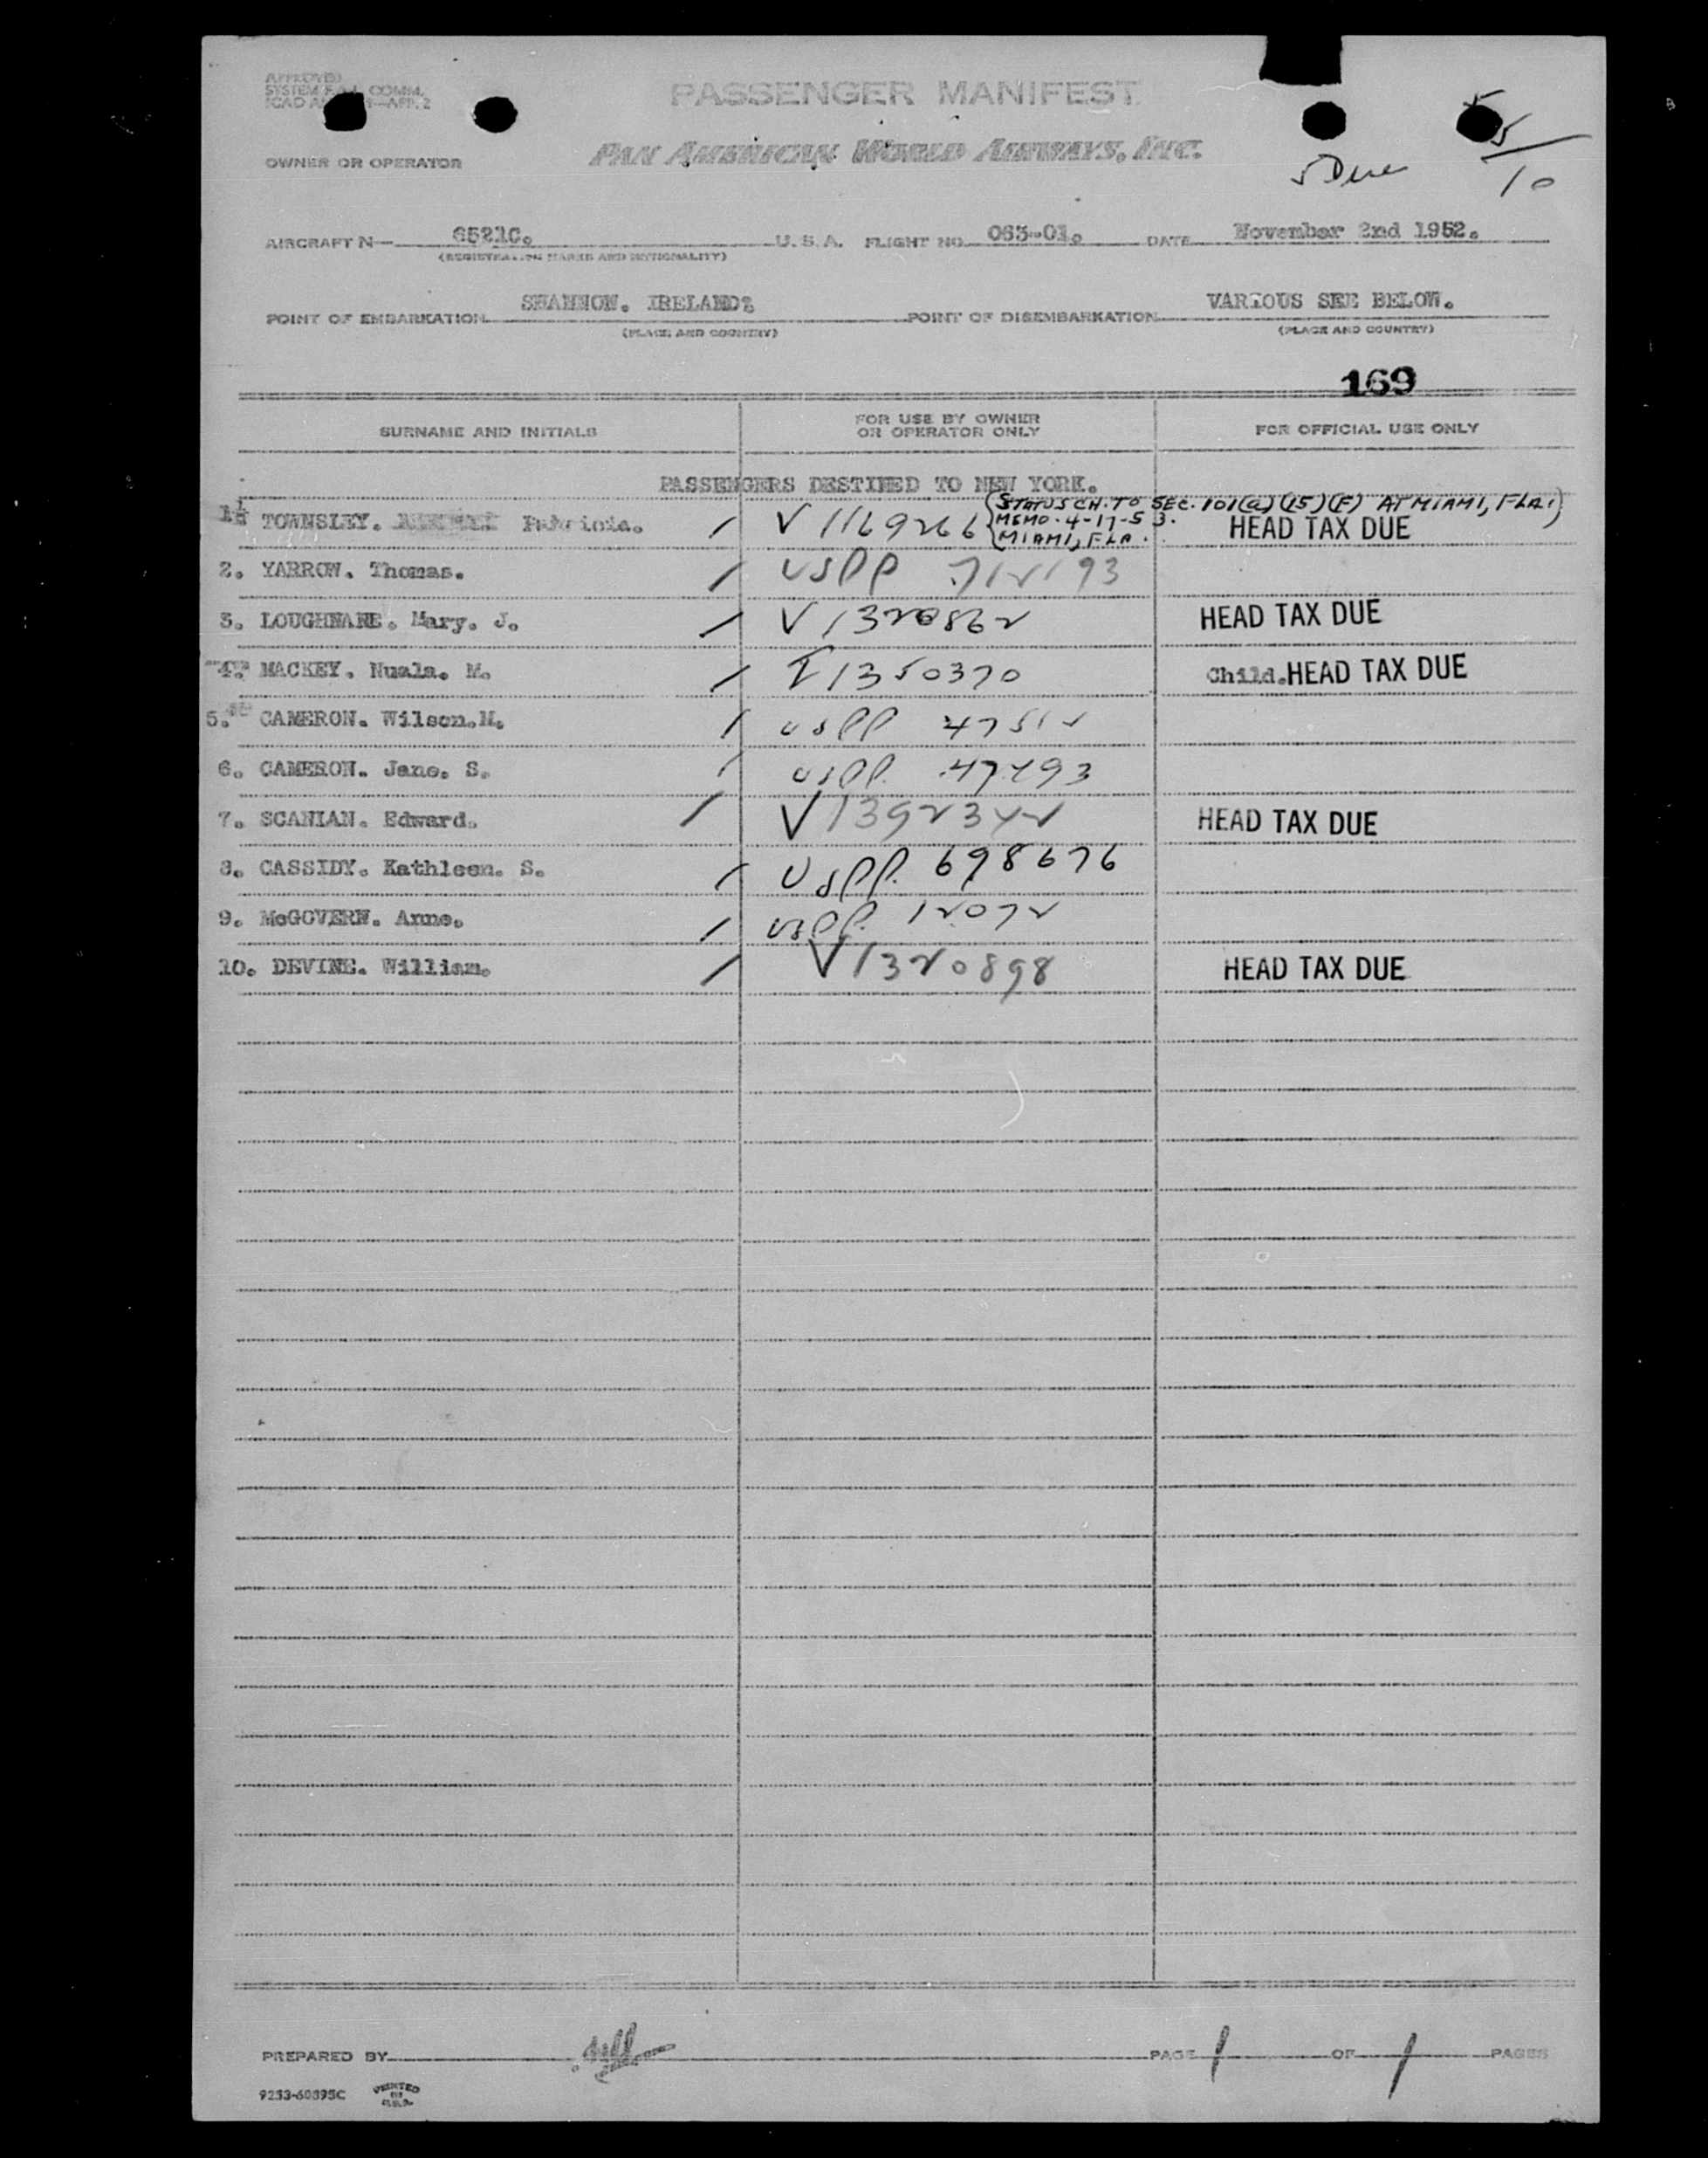 APPROVED
SYSTEM F.A.L. COMM.
PASSENGER MANIFEST
OWNER OR OPERATOR PAN AMERICAN WORLD AIRWAYS, INC.
5 Due 5/10
AIRCRAFT N— 6521C. U.S.A. FLIGHT NO. 063-01. DATE November 2nd 1952.
(REGISTRATION MARKS AND NATIONALITY)
POINT OF EMBARKATION SHANNON. IRELAND; POINT OF DISEMBARKATION VARIOUS SEE BELOW.
(PLACE AND COUNTRY) (PLACE AND COUNTRY)
169
SURNAME AND INITIALS FOR USE BY OWNER OR OPERATOR ONLY FOR OFFICIAL USE ONLY
PASSENGERS DESTINED TO NEW YORK.
(STATUS CH. TO SEC. 101(a)(15)(F) AT MIAMI, FLA.)
MEMO. 4-17-53.
MIAMI, FLA.
1. TOWNSLEY. Patricia. / V 1169266 HEAD TAX DUE
2. YARROW. Thomas. / USPP 712193
3. LOUGHNANE. Mary. J. / V 1320862 HEAD TAX DUE
4. MACKEY. Nuala. M. / I 1350370 Child. HEAD TAX DUE
5. CAMERON. Wilson.M. / USPP 47512
6. CAMERON. Jane. S. / USPP. 47493
7. SCANLAN. Edward. / V 1392342 HEAD TAX DUE
8. CASSIDY. Kathleen. S. / USPP. 698676
9. McGOVERN. Anne. / USPP. 12072
10. DEVINE. William. / V 1320898 HEAD TAX DUE
PREPARED BY PAGE 1 OF 1 PAGES
9253-60895C PRINTED IN U.S.A.